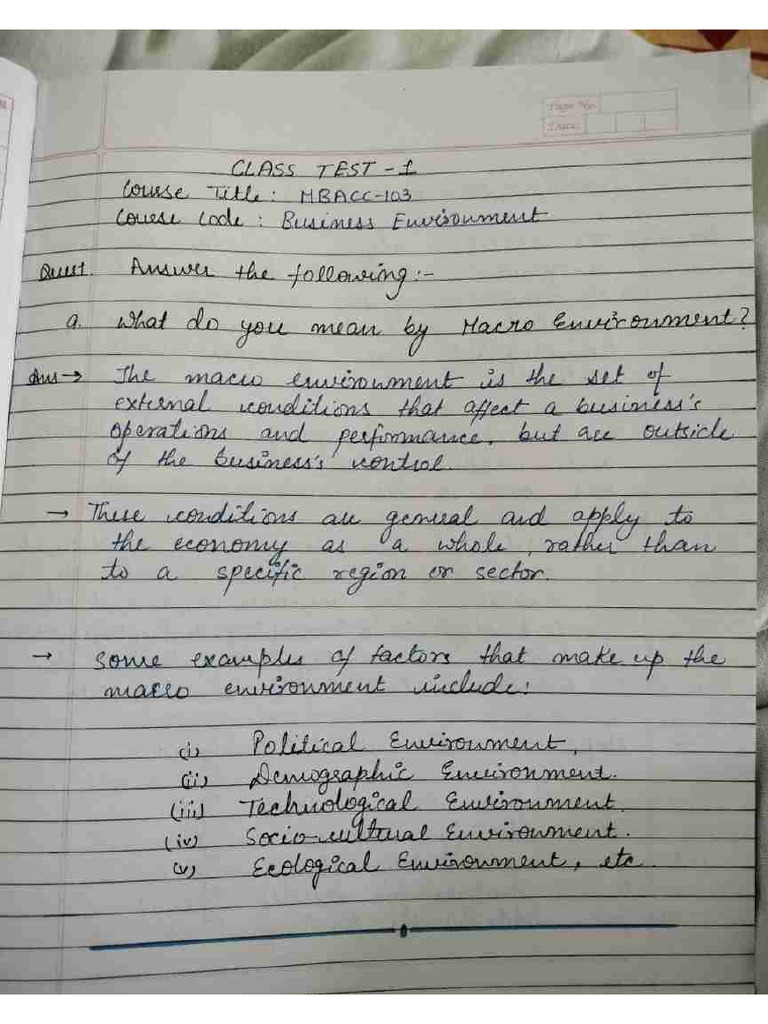 Page No.
Date
CLASS TEST - 1
Course Title : MBACC-103
Course Code : Business Environment
Quest. Answer the following :-
a. What do you mean by Macro Environment?
Ans → The macro environment is the set of
external conditions that affect a business's
operations and performance, but are outside
of the business's control.
→ These conditions are general and apply to
the economy as a whole, rather than
to a specific region or sector.
→ Some examples of factors that make up the
macro environment include:
(i) Political Environment,
(ii) Demographic Environment.
(iii) Technological Environment.
(iv) Socio-cultural Environment.
(v) Ecological Environment, etc.